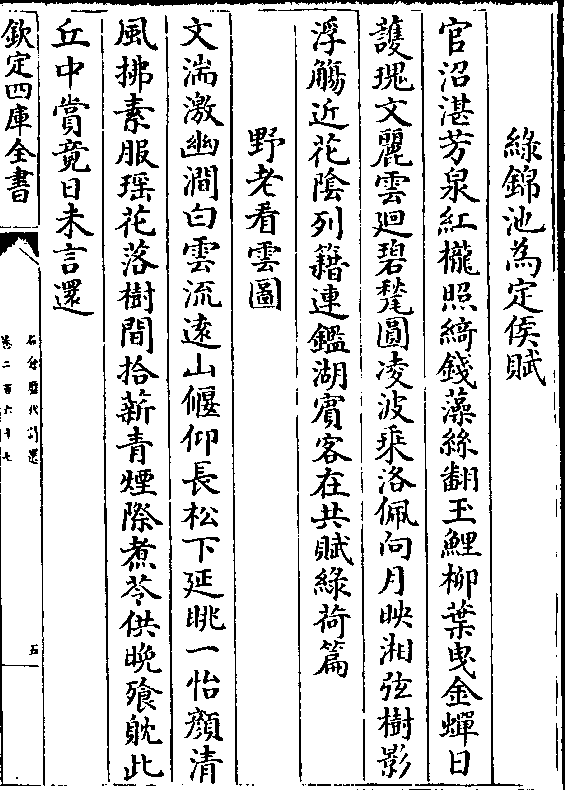 綠錦池為定侯賦
官沼湛芳泉紅櫳照綺錢藻絲翻玉鯉柳葉曳金蟬日
䕶瑰文麗雲廻碧甃圓凌波乘洛佩向月映湘弦樹影
浮觴近花陰列籍連鑑湖賓客在共賦綠荷篇
野老看雲圖
文湍激幽澗白雲流遠山偃仰長松下延眺一怡顔清
風拂素服瑶花落樹間拾薪青煙際煮苓供晚飱躭此
丘中賞竟日未言還
欽定四庫全書
石倉歷代詩選
卷二百六十七
五